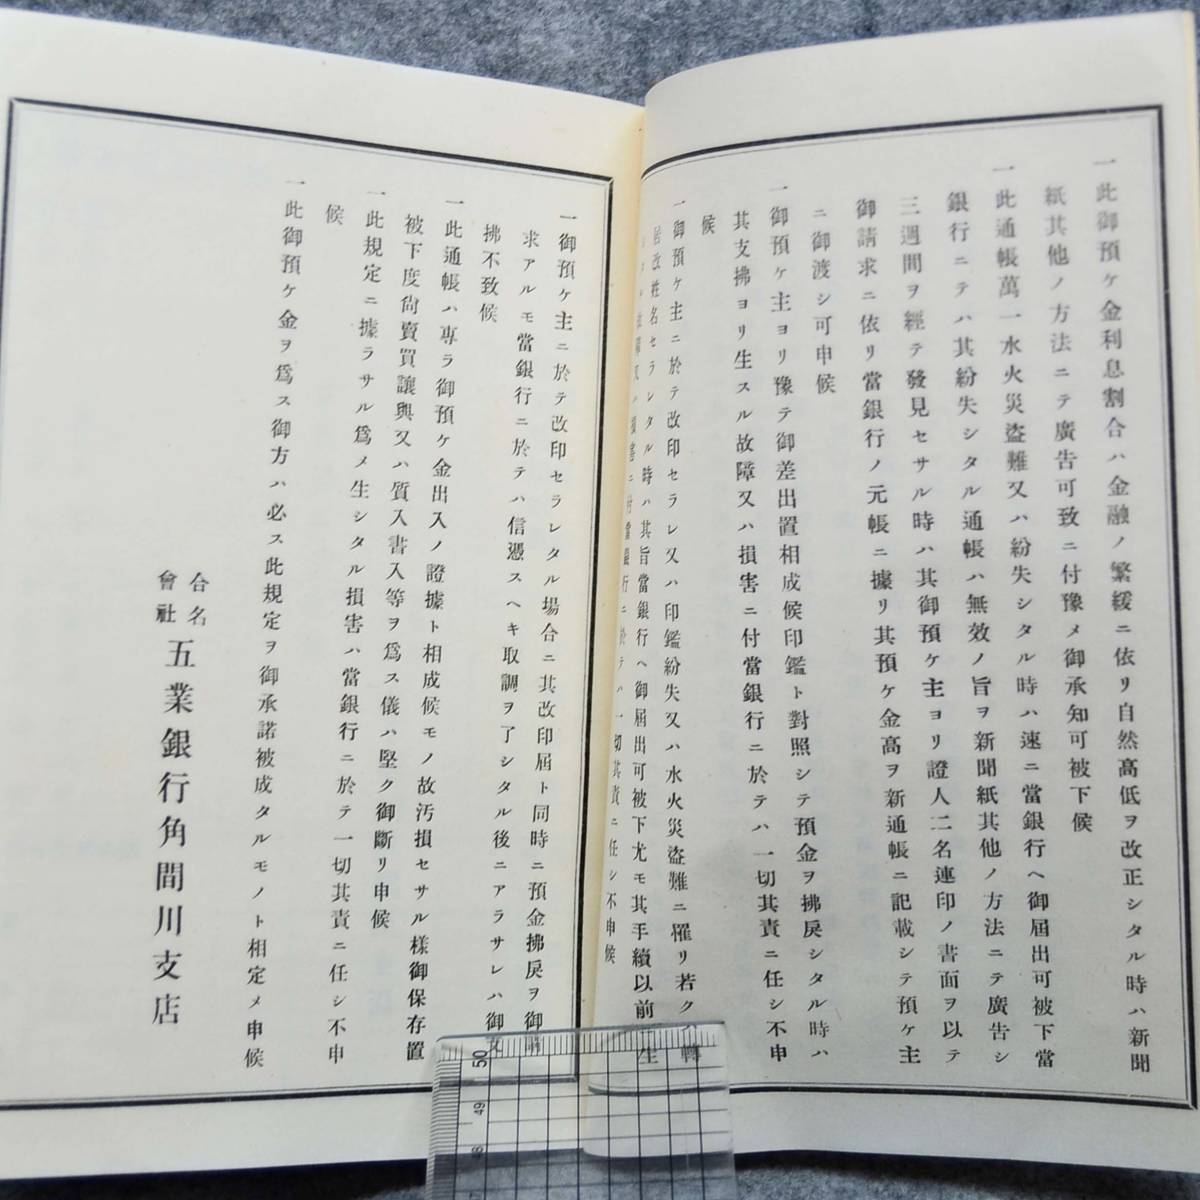 一此御預ケ金利息割合ハ金融ノ繁緩ニ依リ自然高低ヲ改正シタル時ハ新聞
紙其他ノ方法ニテ廣告可致ニ付豫メ御承知可被下候
一此通帳萬一水火災盗難又ハ紛失シタル時ハ速ニ當銀行ヘ御屆出可被下當
銀行ニテハ其紛失シタル通帳ハ無效ノ旨ヲ新聞紙其他ノ方法ニテ廣告シ
三週間ヲ經テ發見セサル時ハ其御預ケ主ヨリ證人二名連印ノ書面ヲ以テ
御請求ニ依リ當銀行ノ元帳ニ據リ其預ケ金高ヲ新通帳ニ記載シテ預ケ主
ニ御渡シ可申候
一御預ケ主ヨリ豫テ御差出置相成候印鑑ト對照シテ預金ヲ拂戻シタル時ハ
其支拂ヨリ生スル故障又ハ損害ニ付當銀行ニ於テハ一切其責ニ任シ不申
候
一御預ケ主ニ於テ改印セラレ又ハ印鑑紛失又ハ水火災盗難ニ罹リ若ク轉
居改姓名セラレタル時ハ其旨當銀行ヘ御屆出可被下尤モ其手續以前生
損害ニ付當銀行ニ於テハ一切其責ニ任シ不申候
一御預ケ主ニ於テ改印セラレタル場合ニ其改印屆ト同時ニ預金拂戻ヲ御
求アルモ當銀行ニ於テハ信憑スヘキ取調ヲ了シタル後ニアラサレハ御
拂不致候
一此通帳ハ專ラ御預ケ金出入ノ證據ト相成候モノ故汚損セサル樣御保存置
被下度尚賣買讓與又ハ質入書入等ヲ爲ス儀ハ堅ク御斷リ申候
一此規定ニ據ラサル爲メ生シタル損害ハ當銀行ニ於テ一切其責ニ任シ不申
候
一此御預ケ金ヲ爲ス御方ハ必ス此規定ヲ御承諾被成タルモノト相定メ申候
合名會社 五業銀行角間川支店
50
49
48